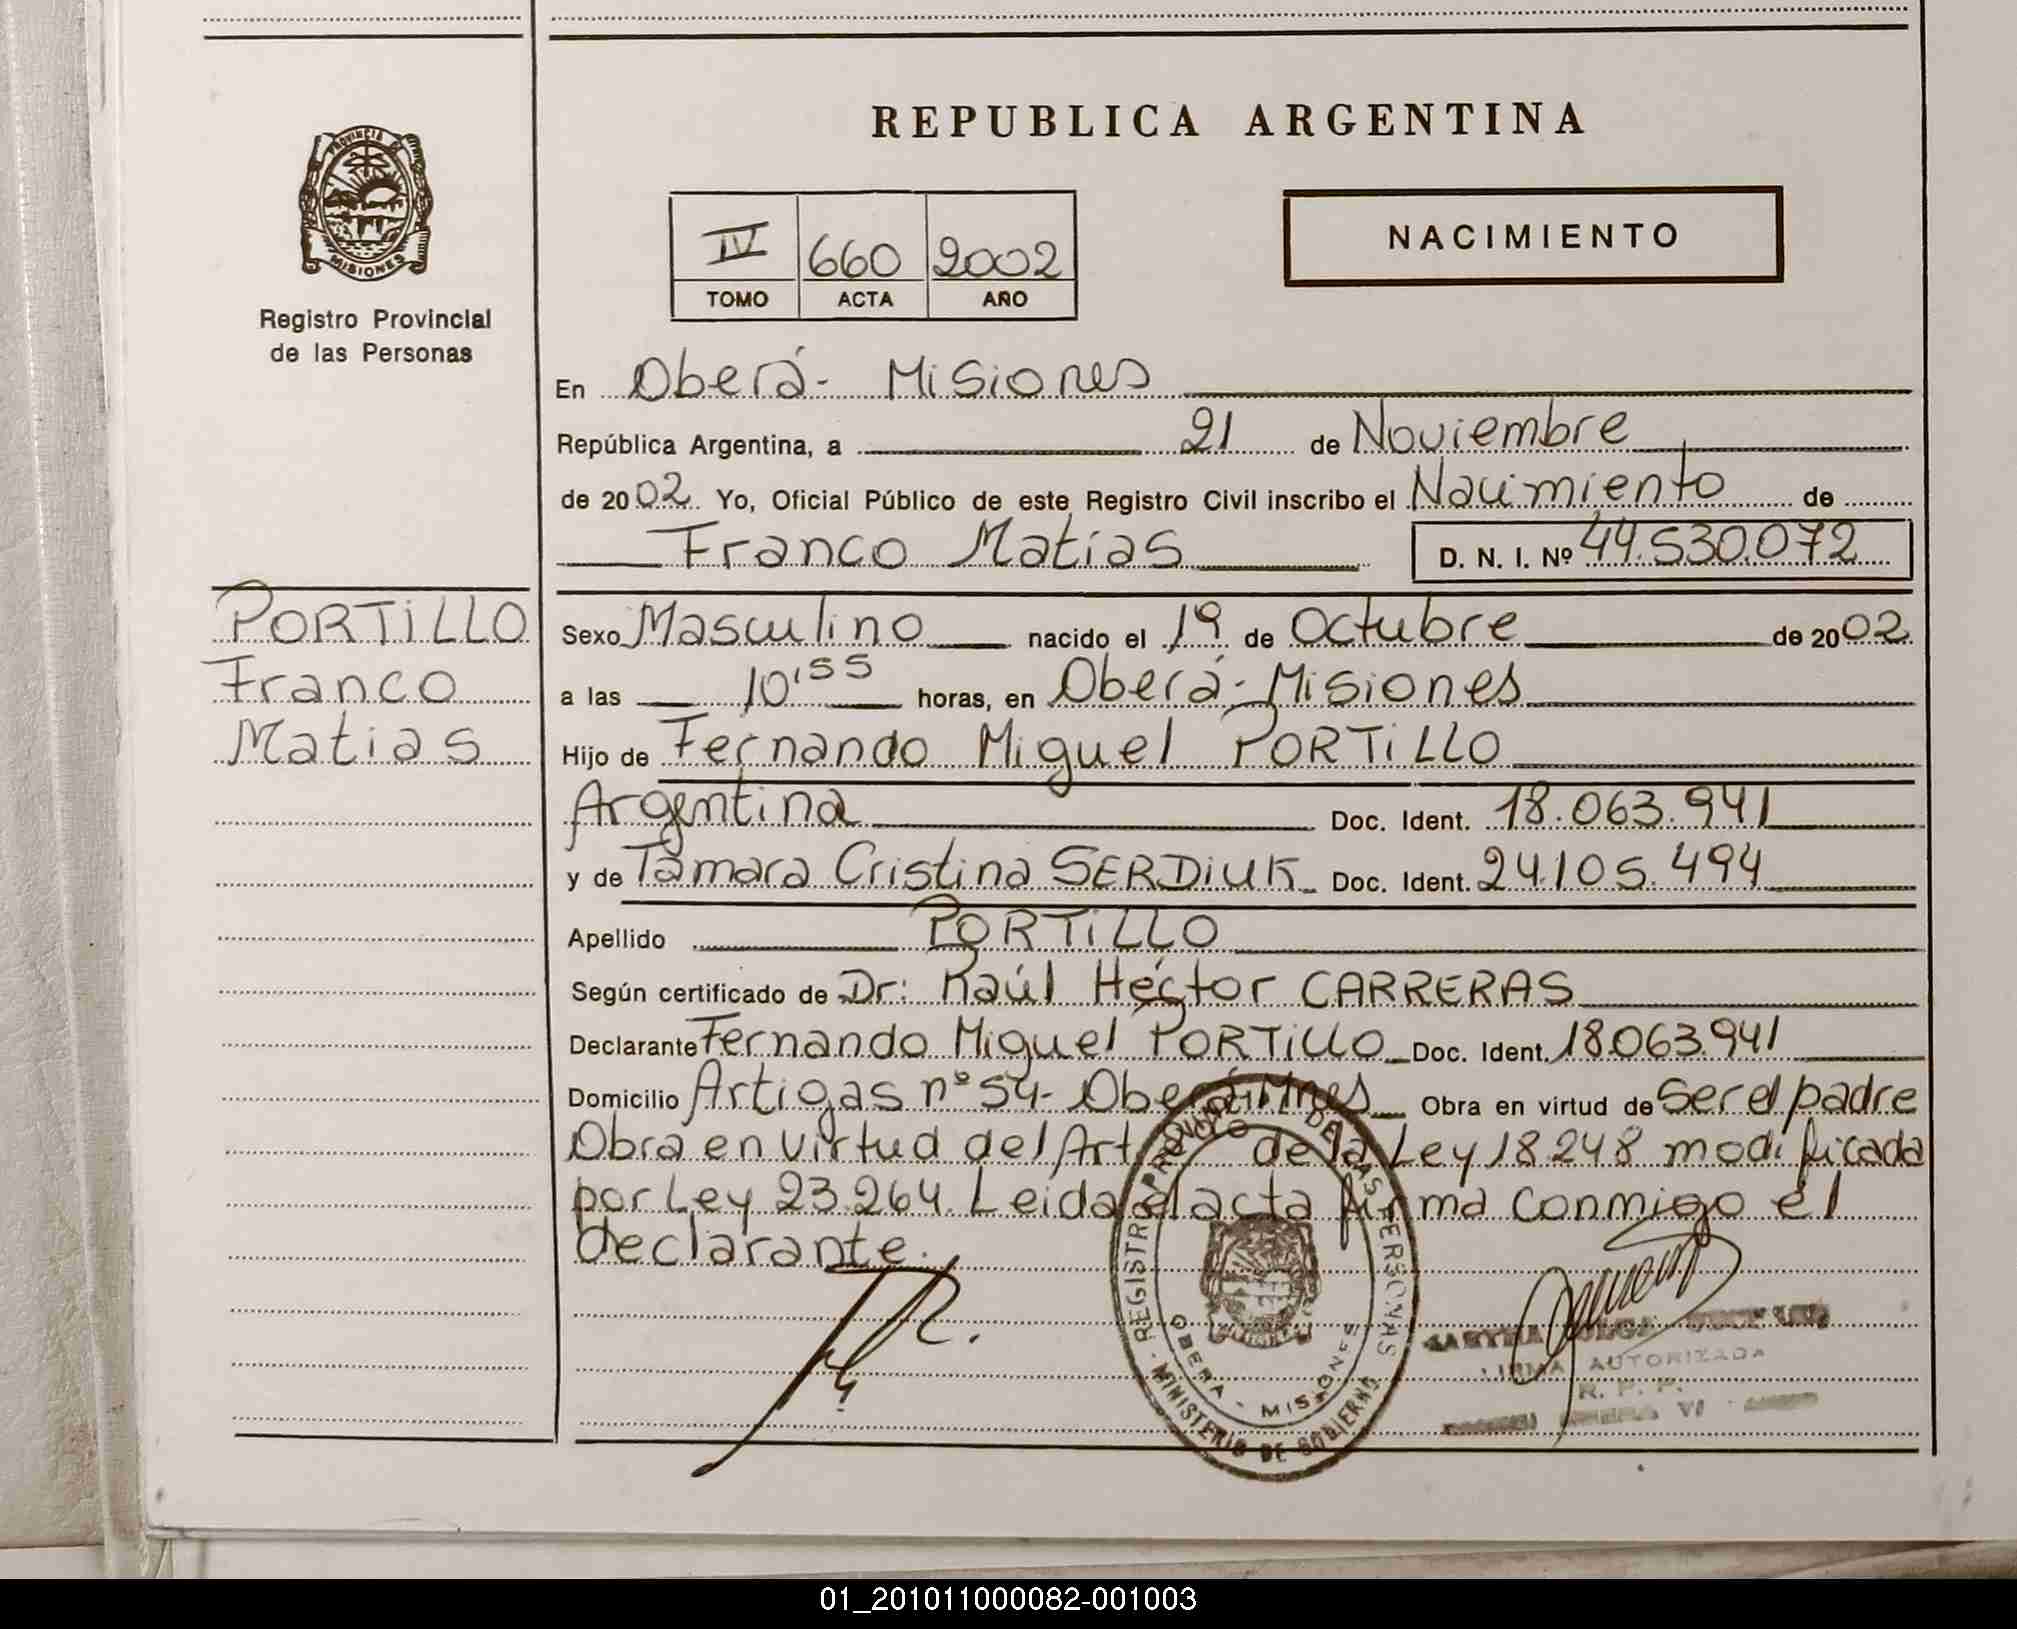 REPUBLICA ARGENTINA
PROVINCIA DE
MISIONES
Registro Provincial
de las Personas
IV 660 2002
TOMO ACTA AÑO
NACIMIENTO
En Oberá- Misiones
República Argentina, a 21 de Noviembre
de 2002 Yo, Oficial Público de este Registro Civil inscribo el Nacimiento de
Franco Matías D. N. I. Nº 44.530.072
PORTiLLO
Franco
Matias
Sexo Masculino nacido el 1º de Octubre de 2002
a las 10'55 horas, en Oberá- Misiones
Hijo de Fernando Miguel PORTiLLO
Argentina Doc. Ident. 18.063.941
y de Tamara Cristina SERDiUK Doc. Ident. 24.105.494
Apellido PORTiLLO
Según certificado de Dr: Raúl Héctor CARRERAS
Declarante Fernando Miguel PORTiLLO Doc. Ident. 18.063.941
Domicilio Artigas nº 54- Oberá Mnes Obra en virtud de ser el padre
Obra en virtud del Art. de la Ley 18248 modificada
por Ley 23.264. Leida el acta firma conmigo el
declarante.
REGISTRO PROVINCIAL DE LAS PERSONAS
MINISTERIO DE GOBIERNO
OBERA - MISIONES
OLGA
FIRMA AUTORIZADA
R. P. P.
01_201011000082-001003